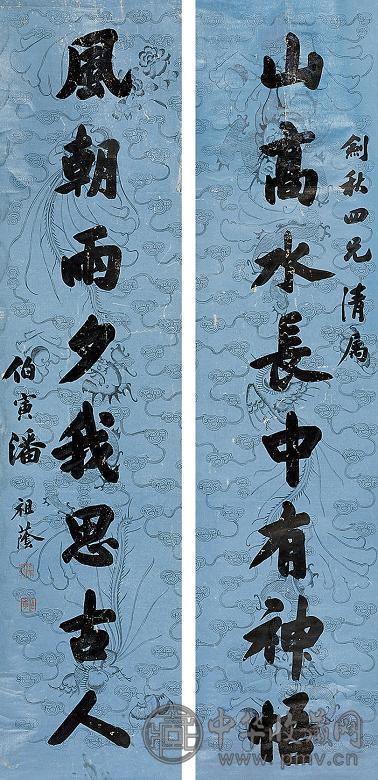 劍秋四兄清屬
山高水長中有神悟
風朝雨夕我思古人
伯寅潘祖蔭
中华收藏网
pmv.cn